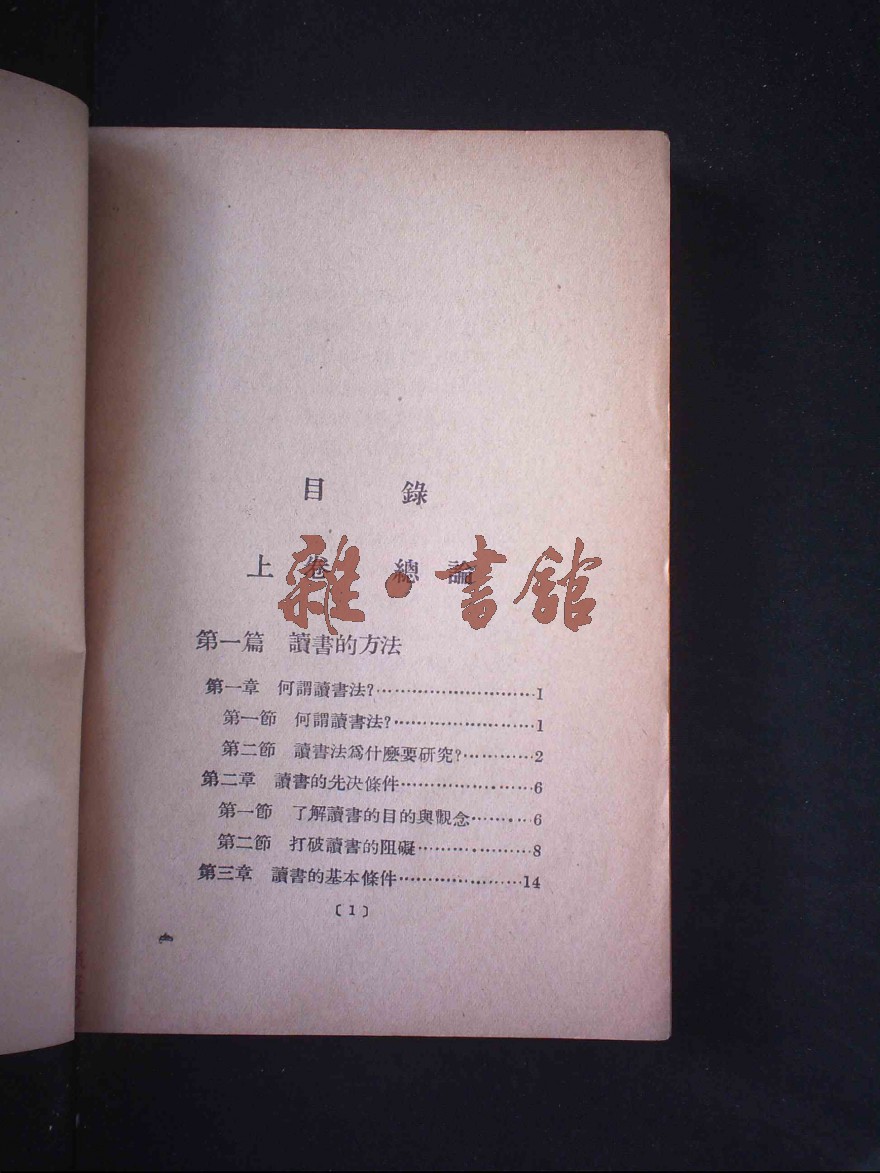 目錄
上卷 總論
雜·書館
第一篇 讀書的方法
第一章 何謂讀書法?…………………………1
第一節 何謂讀書法?………………………1
第二節 讀書法爲什麼要研究?…………2
第二章 讀書的先決條件……………………6
第一節 了解讀書的目的與觀念………6
第二節 打破讀書的阻礙…………………8
第三章 讀書的基本條件…………………14
〔1〕